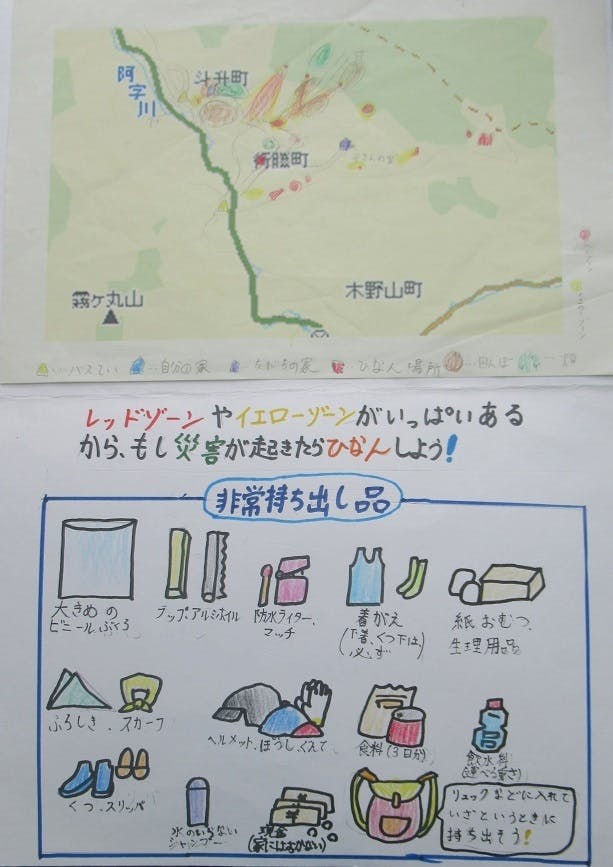 阿字川
斗升町
行縢町
木野山町
霧ケ丸山
レッドゾーン
イエローゾーン
…バスてい …自分の家 …ともだちの家 …ひなん場所 …田んぼ …畑
レッドゾーンやイエローゾーンがいっぱいある
から、もし災害が起きたらひなんしよう!
非常持ち出し品
大きめの
ビニールぶくろ
ラップ アルミホイル
防水ライター、
マッチ
着がえ
(下着、くつ下は
必ず)
紙おむつ、
生理用品
ふろしき、スカーフ
ヘルメット、ぼうし、ぐんて
食料(3日分)
飲水料
(運べる重さ)
くつ、スリッパ
水のいらない
シャンプー
現金
(家にはおかない)
リュックなどに入れて
いざというときに
持ち出そう!